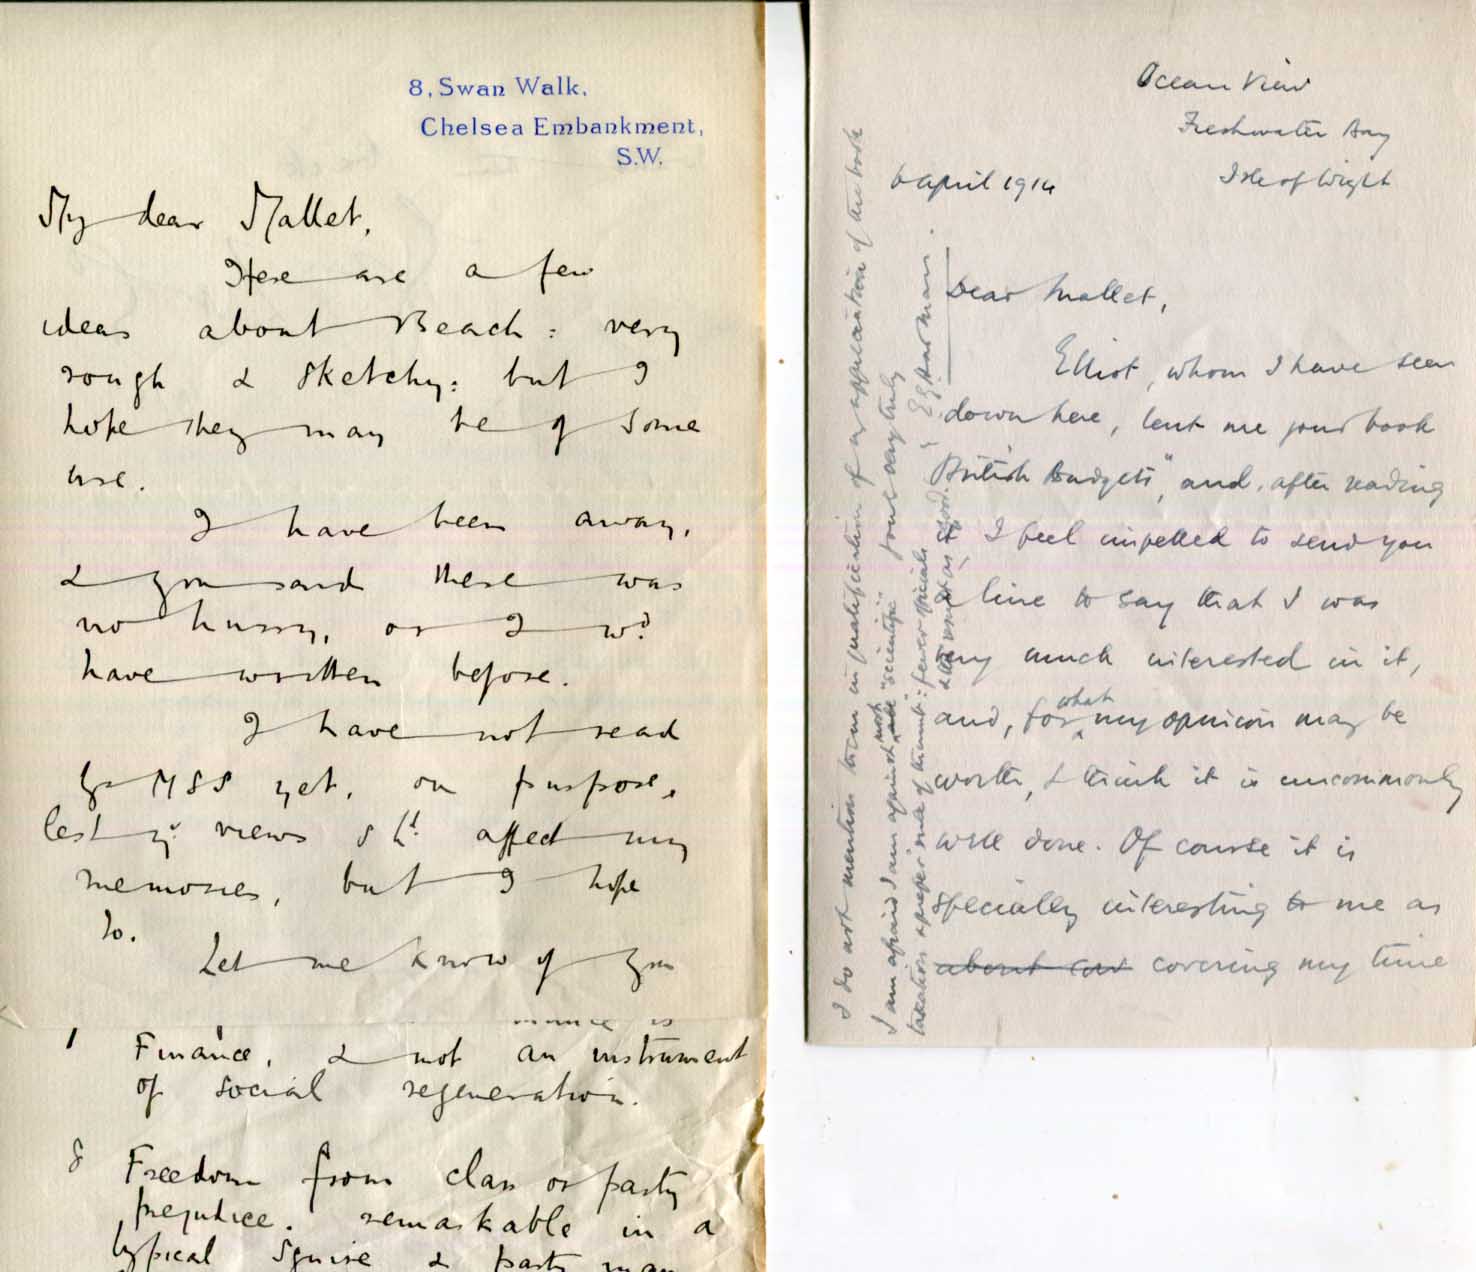 8, Swan Walk,
Chelsea Embankment,
S.W.
My dear Mallet,
Here are a few
ideas about Beach: very
rough & sketchy: but I
hope they may be of some
use.
I have been away,
& you said there was
no hurry, or I wd.
have written before.
I have not read
yr MSS yet, on purpose,
lest yr. views shd. affect my
memories, but I hope
to.
Let me know if you
is
Finance, & not an instrument
of social regeneration.
8 Freedom from class or party
prejudice. remarkable in a
typical Squire & party man
Ocean View
Freshwater Bay
Isle of Wight
6 April 1914
Dear Mallet,
Elliot, whom I have seen
down here, lent me your book
British Budgets", and, after reading
it, I feel impelled to send you
a line to say that I was
very much interested in it,
and, for what my opinion may be
worth, I think it is uncommonly
well done. Of course it is
specially interesting to me as
about covering my time
I do not mention them in qualification of my appreciation of the book
I am afraid I am against most "scientific"
taxation & prefer one of thumb: fewer officials
yours very truly
E G Harman.